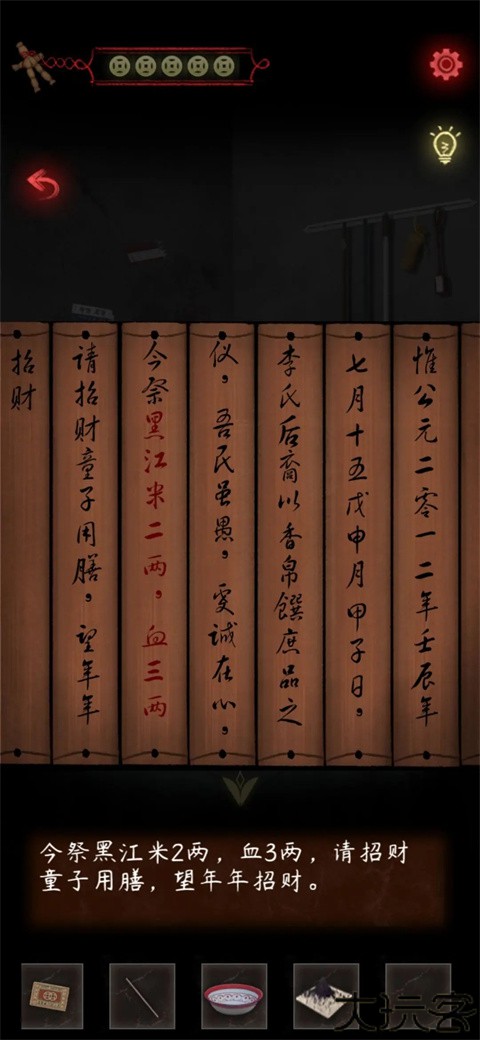 惟公元二零一二年壬辰年
七月十五戊申月甲子日，
李氏后裔以香帛馔庶品之
仪，吾民虽愚，虔诚在心，
今祭黑江米二两，血三两
请招财童子用膳，望年年
招财
今祭黑江米2两，血3两，请招财
童子用膳，望年年招财。
大玩客